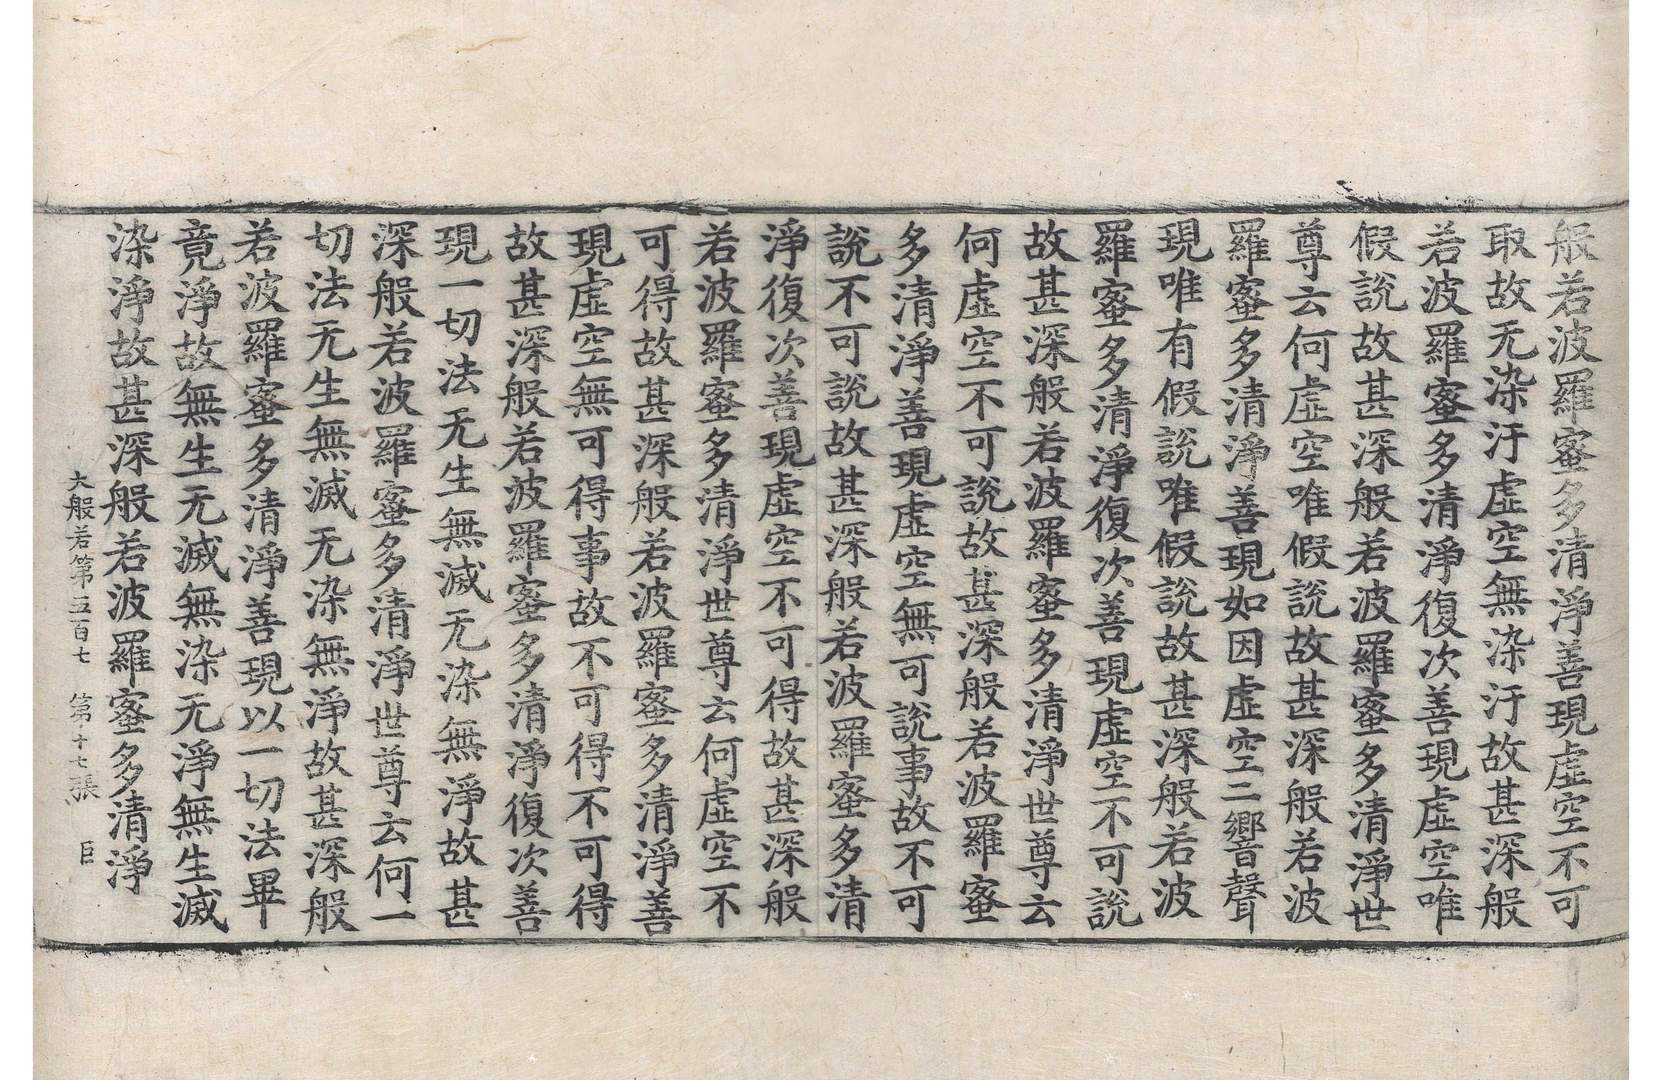 般若波羅蜜多清淨善現虛空不可
取故无染汙虛空無染汙故甚深般
若波羅蜜多清淨復次善現虛空唯
假說故甚深般若波羅蜜多清淨世
尊云何虛空唯假說故甚深般若波
羅蜜多清淨善現如因虛空二響聲
現唯有假說唯假說故甚深般若波
羅蜜多清淨復次善現虛空不可說
故甚深般若波羅蜜多清淨世尊云
何虛空不可說故甚深般若波羅蜜
多清淨善現虛空無可說事故不可
說不可說故甚深般若波羅蜜多清
淨復次善現虛空不可得故甚深般
若波羅蜜多清淨世尊云何虛空不
可得故甚深般若波羅蜜多清淨善
現虛空無可得事故不可得不可得
故甚深般若波羅蜜多清淨復次善
現一切法无生無滅无染無淨故甚
深般若波羅蜜多清淨世尊云何一
切法无生無滅无染無淨故甚深般
若波羅蜜多清淨善現以一切法畢
竟淨故無生无滅無染无淨無生滅
染淨故甚深般若波羅蜜多清淨
大般若第五百七 第十七張 巨